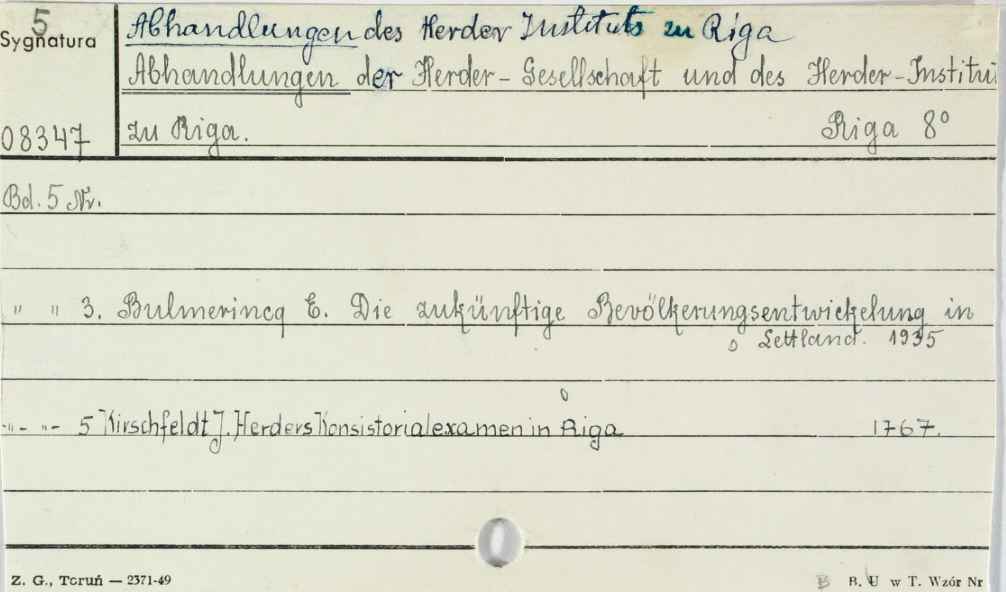 5
Sygnatura
Abhandlungen des Herder Instituts zu Riga
Abhandlungen der Herder-Gesellschaft und des Herder-Institu
08347
zu Riga. Riga 8°
Bd. 5 Nr.
" " 3. Bulmerincq E. Die zukünftige Bevölkerungsentwickelung in
Lettland. 1935
-"- -"- 5 Kirschfeldt J. Herders Konsistorialexamen in Riga 1767.
Z. G., Toruń — 2371-49
B B. U w T. Wzór Nr